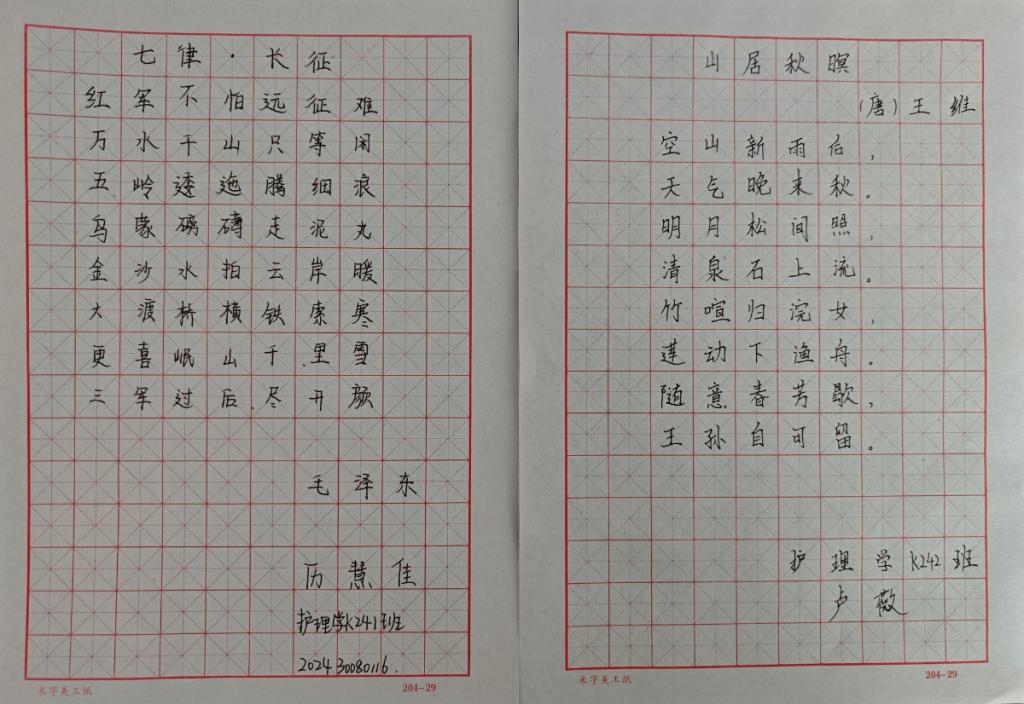 七律·长征
红军不怕远征难
万水千山只等闲
五岭逶迤腾细浪
乌蒙磅礴走泥丸
金沙水拍云岸暖
大渡桥横铁索寒
更喜岷山千里雪
三军过后尽开颜
毛泽东
历慧佳
护理学K241班
202430080116.
米字美工纸
204-29
山居秋暝
(唐)王维
空山新雨后,
天气晚来秋。
明月松间照,
清泉石上流。
竹喧归浣女,
莲动下渔舟。
随意春芳歇,
王孙自可留。
护理学K242班
卢薇
米字美工纸
204-29